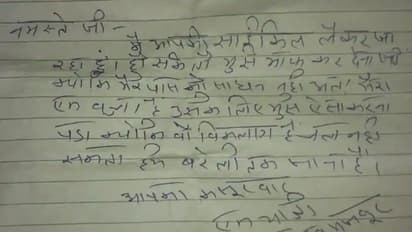 नमस्ते जी -
मै आपकी साईकिल लेकर जा
रहा हुं। हो सके तो मुझे माफ कर देना जी
क्योकि मेरे पास कोई साधन नही मेरा
एक बच्चा है उसके लिए मुझे ऐसा करना
पड़ा क्योकि वो विकलांग है चल नही
सकता हमे बरेली तक जाना है।
आपका कसूरवार
एक यात्री
मजदूर